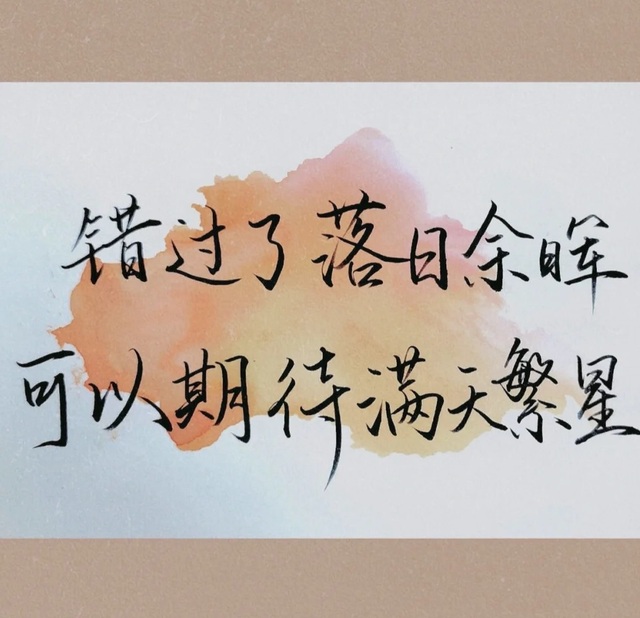 错过了落日余晖
可以期待满天繁星